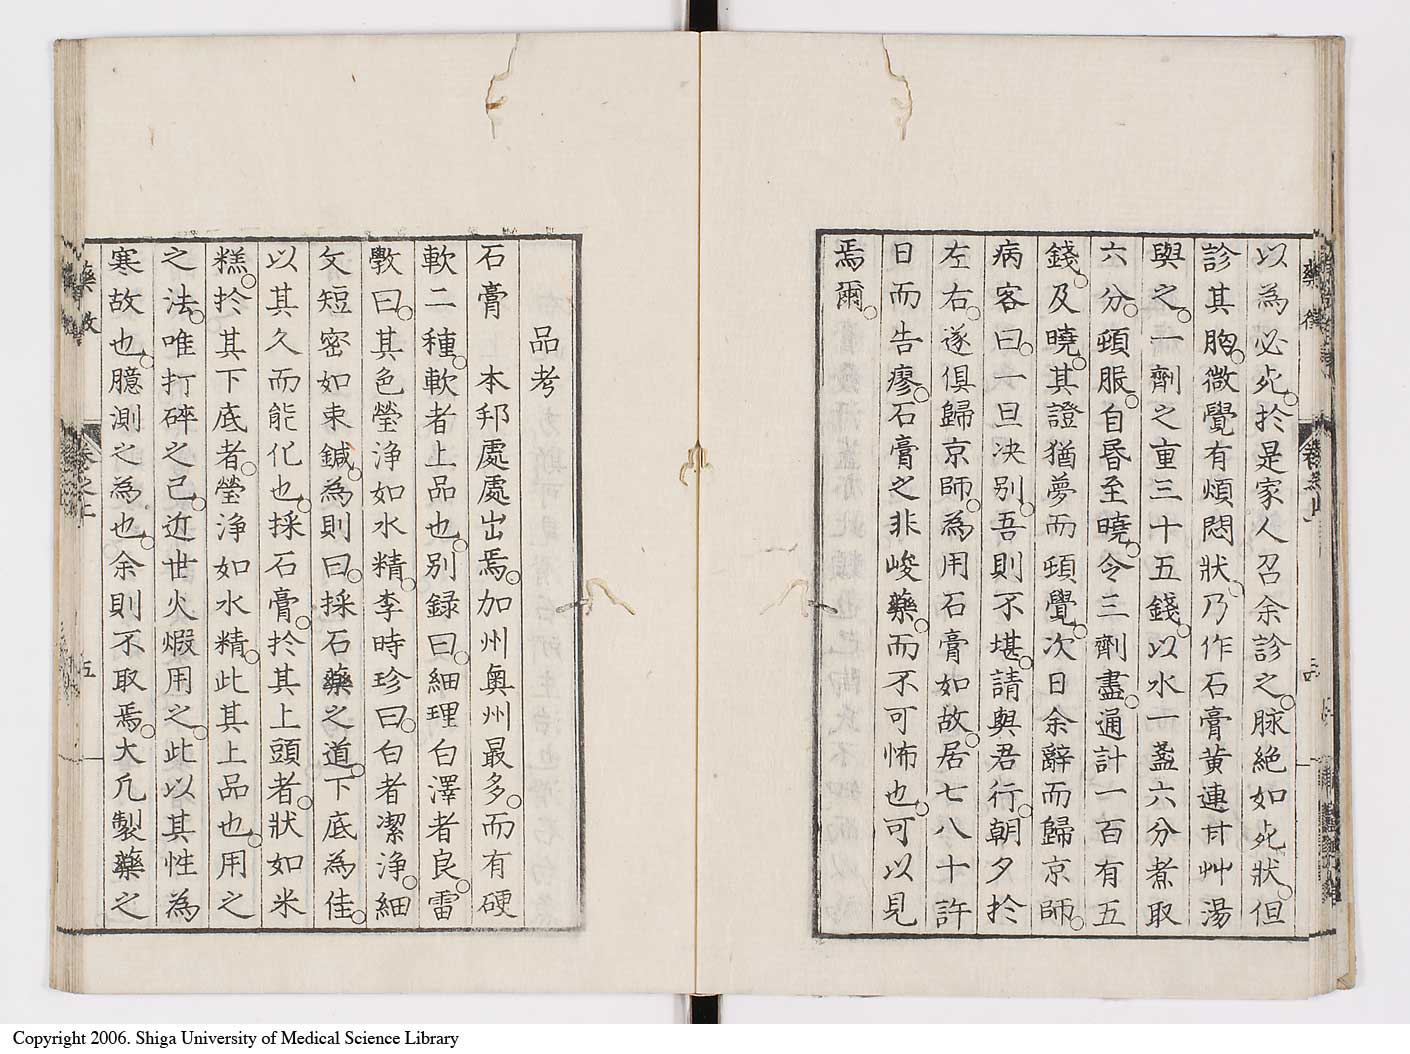 以為必死。於是家人召余診之。脉絶如死狀。但
診其胸。微覺有煩悶狀。乃作石膏黄連甘艸湯
與之。一劑之重三十五錢。以水一盞六分煮取
六分。頓服。自昏至曉。令三劑盡。通計一百有五
錢。及曉。其證猶夢而頓覺。次日余辭而歸京師。
病客曰。一旦决别。吾則不堪。請與君行。朝夕於
左右。遂俱歸京師。為用石膏如故。居七八十許
日而告瘳。石膏之非峻藥。而不可怖也。可以見
焉爾。
品考
石膏 本邦處處出焉。加州奥州最多。而有硬
軟二種。軟者上品也。别録曰。細理白澤者良。雷
斅曰。其色瑩浄如水精。李時珍曰。白者潔浄。細
文短密如束鍼。為則曰。採石藥之道。下底為佳。
以其久而能化也。採石膏。於其上頭者。狀如米
糕。於其下底者。瑩浄如水精。此其上品也。用之
之法。唯打碎之已。近世火煆用之。此以其性為
寒故也。臆測之為也。余則不取焉。大凡製藥之
卷之上
五
Copyright 2006. Shiga University of Medical Science Library